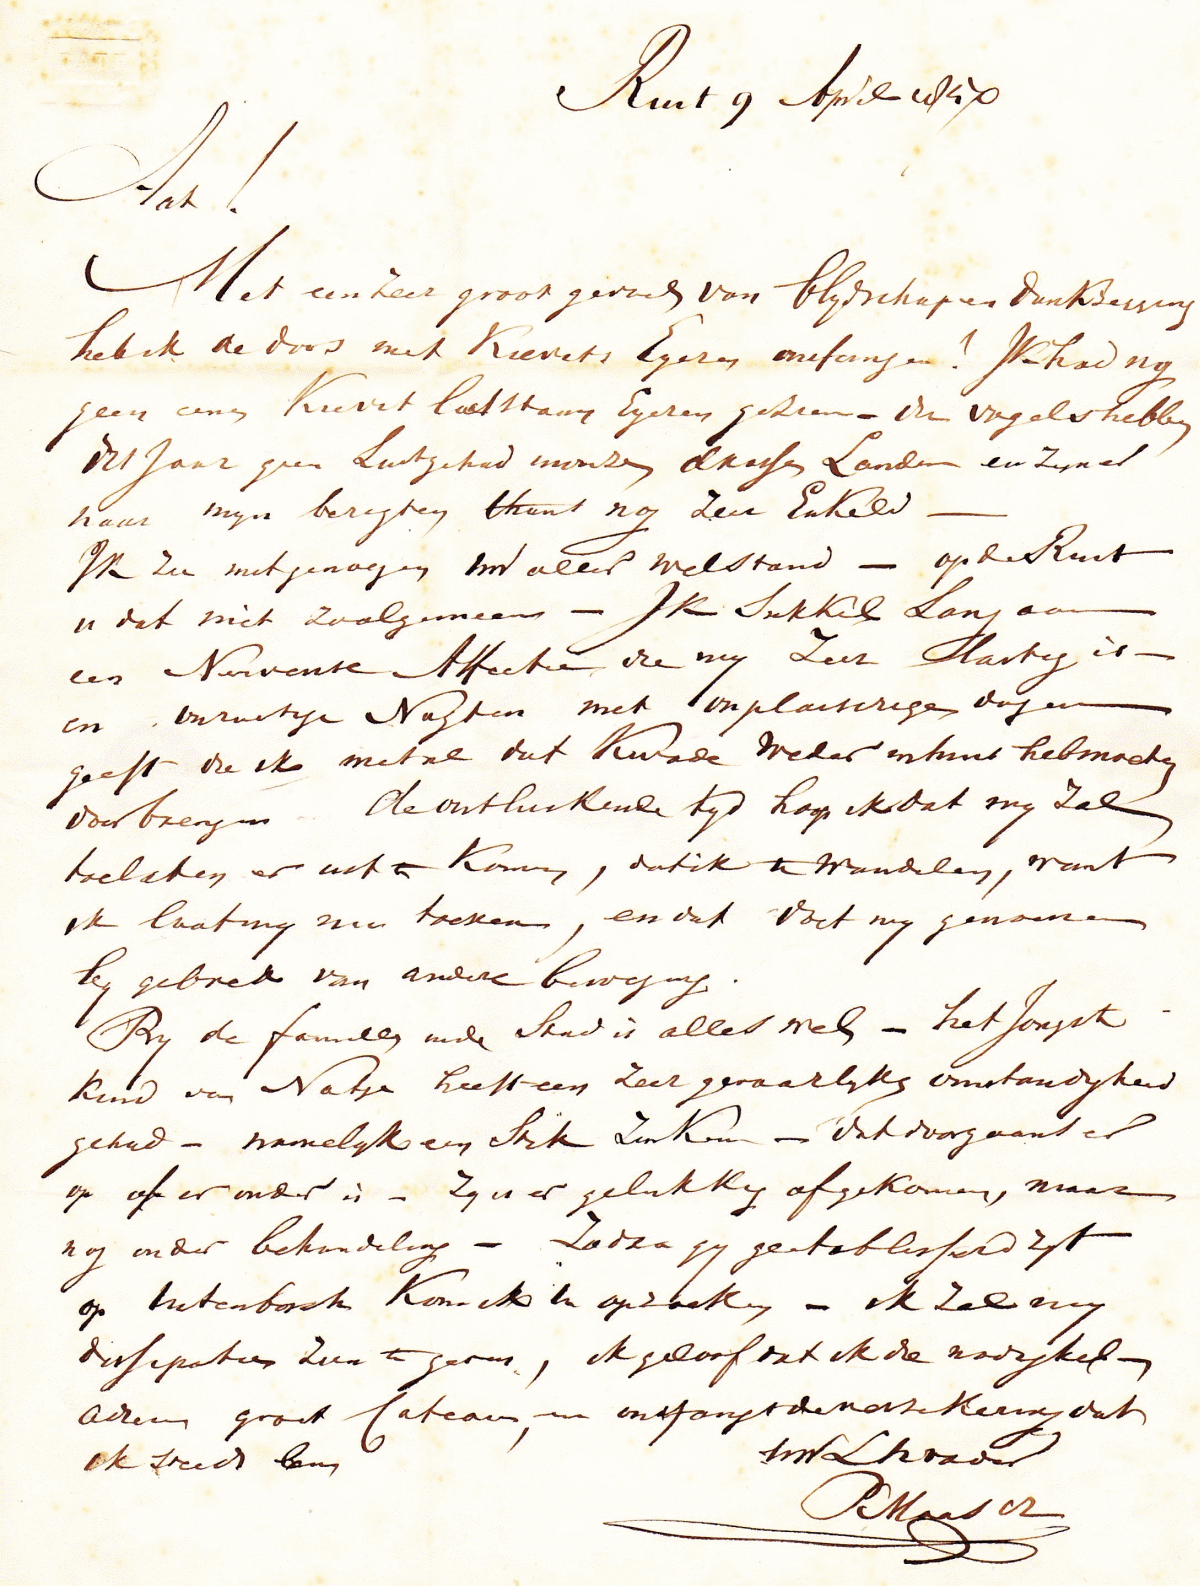 Rust 9 April 1850
Aat!
Met een zeer groot gevoel van blydschap en dankzegging
heb ik de doos met Kievits Eyeren ontfangen! Ik had nog
geen een Kievit laatstaan Eyeren gezien – die vogels hebben
dit Jaar geen Lust gehad in onze drasse Landen en zyn er
naar myn berigten thans nog zeer Enkeld —
Ik zie met genoegen uw aller welstand — op de Rust
is dat niet zoo algemeen – Ik Sukkel Lang aan
een Nerveuse Affectie die my Zeer Lastig is –
en onrustige Nagten met onplaisierige dagen
geeft die ik met al dat Kwade Weder in huis heb moeten
doorbrengen de ontluikende tyd hoop ik dat my Zal
toelaten er uit te Komen, dat ik te Wandelen, want
ik laat my nu trekken, en dat doet my genoegen
by gebrek van andere beweging.
By de famille in de Stad is alles wel – het Jongste
Kind van Natje heeft een zeer gevaarlyke omstandigheid
gehad – namelyk een Stuk – dat doorgaans er
op of er onder is – Zy is er gelukkig afgekomen, maar
nog onder behandeling – Zodra gy geetablisseerd zyt
op Kom ik U opzoeken – ik Zal my
dissipatie Zien te geven, ik geloof dat ik die nodig heb –
adieu groet Cateau, en ontfangt de verzekering dat
ik steeds ben
uw L h vader
P Maas